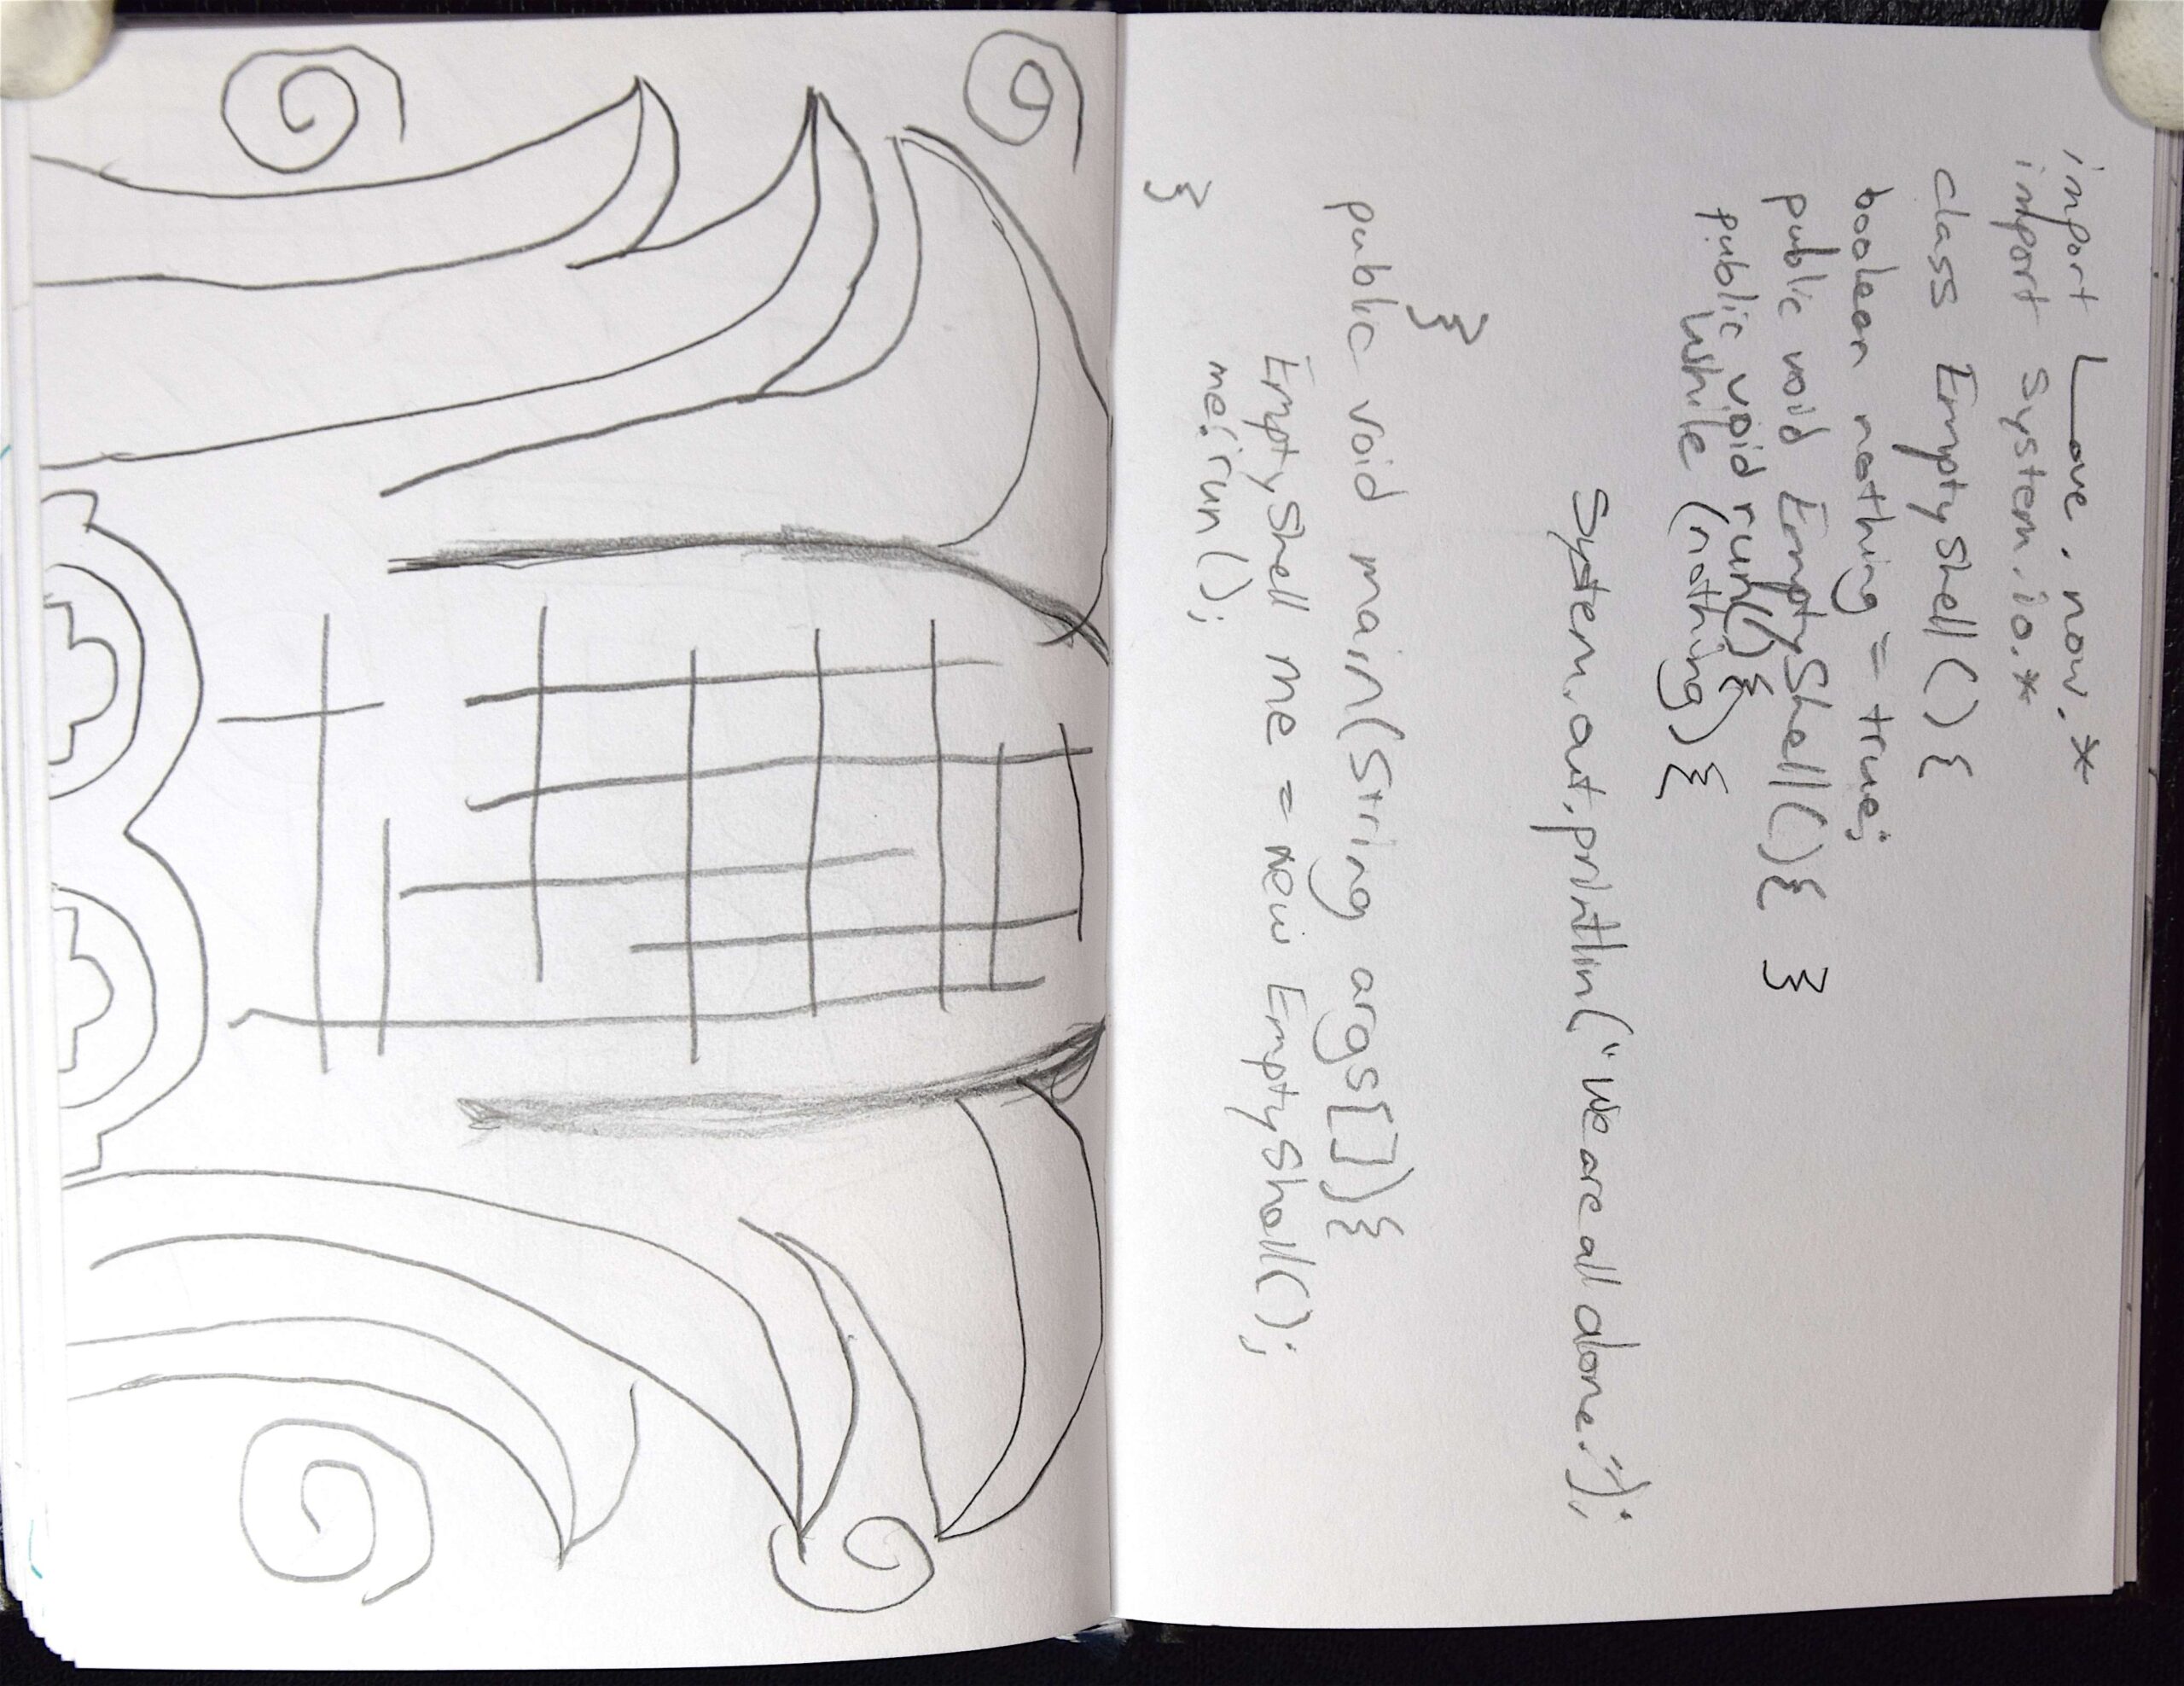 import Love.now.*
import System.io.*
class EmptyShell(){
boolean nothing = true;
public void EmptyShell(){ }
public void run(){
while (nothing) {
System.out.println("We are all done.");
}
public void main(String args[]){
EmptyShell me = new EmptyShell();
me.run();
}